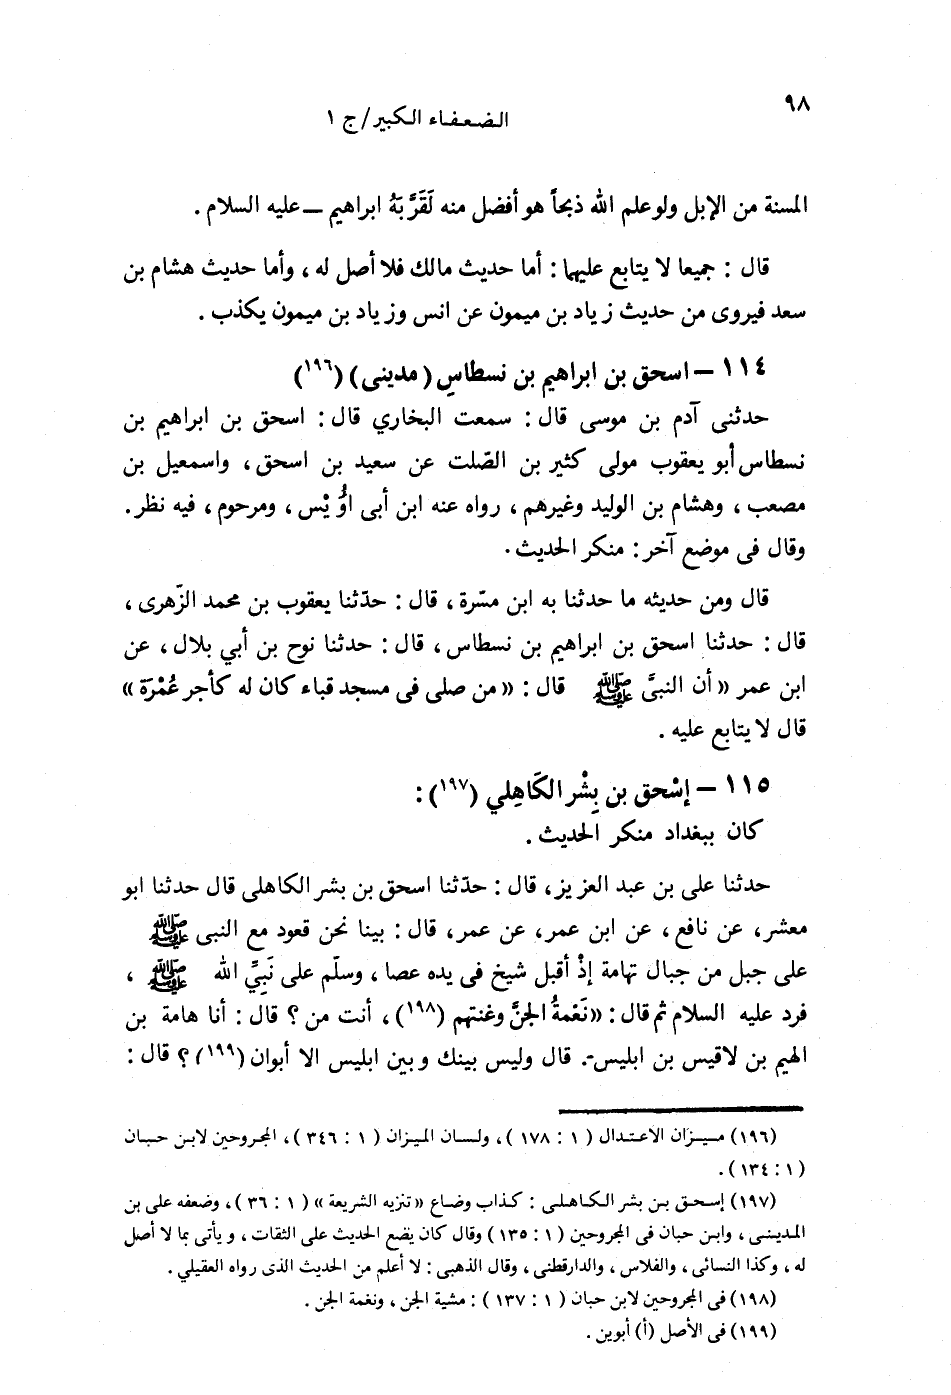 ٩٨
الضعفاء الكبير/ج ١
المسنة من الإبل ولو علم الله ذبحاً هو أفضل منه لَقَرَّبَهُ ابراهيم ــ عليه السلام .
قال : جميعا لا يتابع عليها : أما حديث مالك فلا أصل له ، وأما حديث هشام بن
سعد فيروى من حديث زياد بن ميمون عن انس وزياد بن ميمون يكذب .
١١٤ – اسحق بن ابراهيم بن نسطاسٍ (مدينى) (١٩٦)
حدثنى آدم بن موسى قال : سمعت البخاري قال : اسحق بن ابراهيم بن
نسطاس أبو يعقوب مولى كثير بن الصّلت عن سعيد بن اسحق ، واسمعيل بن
مصعب ، وهشام بن الوليد وغيرهم ، رواه عنه ابن أبى أُوَيْس ، ومرحوم ، فيه نظر.
وقال فى موضع آخر : منكر الحديث .
قال ومن حديثه ما حدثنا به ابن مسّرة ، قال : حدّثنا يعقوب بن محمد الزّهرى ،
قال : حدثنا اسحق بن ابراهيم بن نسطاس ، قال : حدثنا نوح بن أبي بلال ، عن
ابن عمر « أن النبىَّ ﷺ قال : « من صلى فى مسجد قباء كان له كأجر عُمْرَة »
قال لا يتابع عليه .
١١٥ – إسْحق بن بِشْر الكَاهِلي (١٩٧) :
كان ببغداد منكر الحديث .
حدثنا على بن عبد العزيز، قال : حدّثنا اسحق بن بشر الكاهلى قال حدثنا ابو
معشر، عن نافع ، عن ابن عمر، عن عمر، قال : بينا نحن قعود مع النبى ﷺ
على جبل من جبال تهامة إذْ أقبل شيخ فى يده عصا ، وسلّم على نَبِيِّ الله ﷺ ،
فرد عليه السلام ثم قال : «نَغْمةُ الجنَّ وغنتهم (١٩٨) ، أنت من ؟ قال : أنا هامة بن
الهيم بن لاقيس بن ابليس-. قال وليس بينك وبين ابليس الا أبوان (١٩٩) ؟ قال :
(١٩٦) ميزان الاعتدال (١ : ١٧٨) ، ولسان الميزان (١ : ٣٤٦) ، المجروحين لابن حبان
(١ : ١٣٤) .
(١٩٧) إسحق بن بشر الكاهلى : كذاب وضاع «تنزيه الشريعة» (١ : ٣٦) ، وضعفه على بن
المدينى ، وابن حبان فى المجروحين (١ : ١٣٥) وقال كان يضع الحديث على الثقات ، ويأتى بما لا أصل
له ، وكذا النسائى ، والفلاس ، والدارقطنى ، وقال الذهبى : لا أعلم من الحديث الذى رواه العقيلي .
(١٩٨) فى المجروحين لابن حبان (١ : ١٣٧) : مشية الجن ، ونغمة الجن .
(١٩٩) فى الأصل (أ) أبوين .